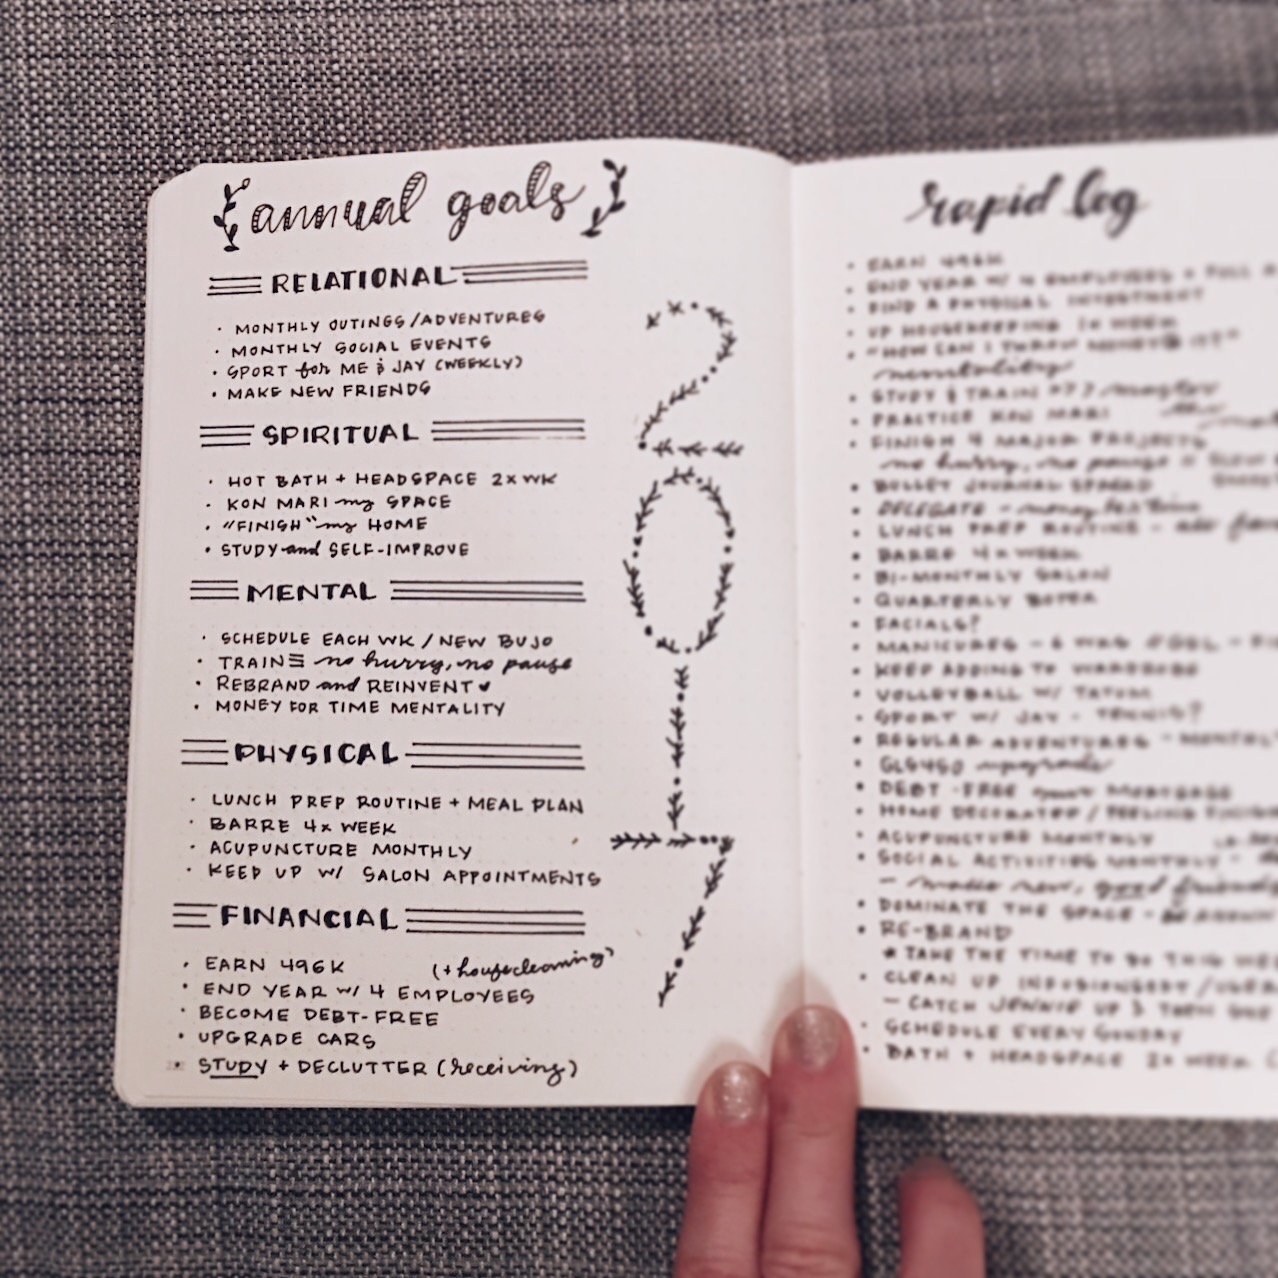 annual goals
RELATIONAL
• MONTHLY OUTINGS/ADVENTURES
• MONTHLY SOCIAL EVENTS
• SPORT for ME & JAY (WEEKLY)
• MAKE NEW FRIENDS
SPIRITUAL
• HOT BATH + HEADSPACE 2x WK
• KON MARI my SPACE
• "FINISH" my HOME
• STUDY and SELF-IMPROVE
MENTAL
• SCHEDULE EACH WK / NEW BUJO
• TRAIN no hurry, no pause
• REBRAND and REINVENT ♥
• MONEY FOR TIME MENTALITY
PHYSICAL
• LUNCH PREP ROUTINE + MEAL PLAN
• BARRE 4x WEEK
• ACUPUNCTURE MONTHLY
• KEEP UP W/ SALON APPOINTMENTS
FINANCIAL
• EARN 496K (+ housecleaning)
• END YEAR W/ 4 EMPLOYEES
• BECOME DEBT-FREE
• UPGRADE CARS
• STUDY + DECLUTTER (receiving)
2017
rapid log
• EARN 496K
• END YEAR W/ 4 EMPLOYEES + FULL
• FIND A PHYSICAL INVESTMENT
• UP HOUSEKEEPING 1x WEEK
• "HOW CAN I THROW MONEY @ IT?"
mentality
• STUDY & TRAIN
• PRACTICE KON MARI
• FINISH 4 MAJOR PROJECTS
no hurry, no pause
• BULLET JOURNAL SPREAD
• DELEGATE - money for time
• LUNCH PREP ROUTINE
• BARRE 4x WEEK
• BI-MONTHLY SALON
• QUARTERLY BOTOX
• FACIALS?
• MANICURES - 6 WKS
• KEEP ADDING TO WARDROBE
• VOLLEYBALL W/ TATUM
• SPORT W/ JAY - TENNIS?
• REGULAR ADVENTURES - MONTHLY
• GLS450 upgrade
• DEBT-FREE MORTGAGE
• HOME DECORATED / FEELING
• ACUPUNCTURE MONTHLY
• SOCIAL ACTIVITIES MONTHLY -
- make new, good friends
• DOMINATE THE SPACE -
• RE-BRAND
* TAKE THE TIME TO DO THIS
• CLEAN UP
- CATCH JENNIE UP & THEN
• SCHEDULE EVERY SUNDAY
• BATH + HEADSPACE 2x WEEK